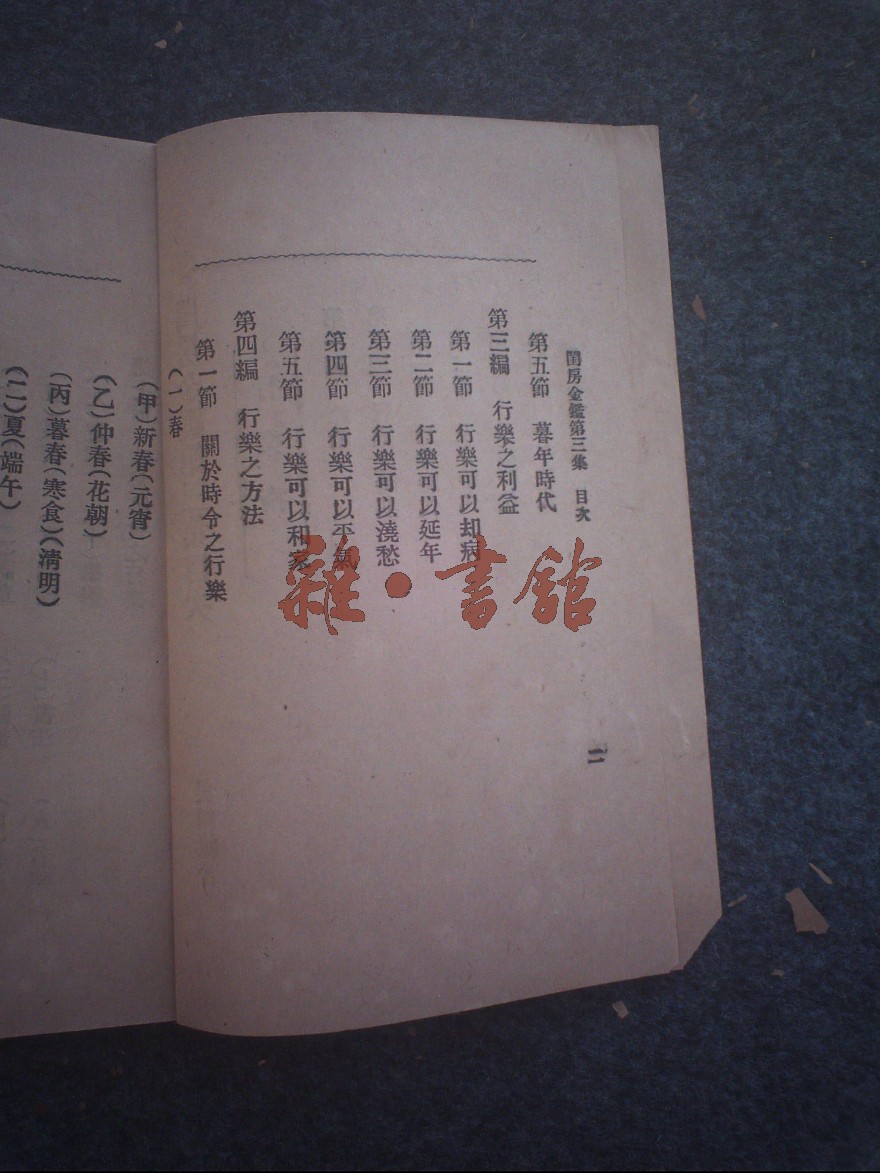 閨房金鑑第三集 目次
第五節 暮年時代
第三編 行樂之利益
第一節 行樂可以却病
第二節 行樂可以延年
第三節 行樂可以澆愁
第四節 行樂可以平氣
第五節 行樂可以和家
第四編 行樂之方法
第一節 關於時令之行樂
二
(一)春
(甲)新春(元宵)
(乙)仲春(花朝)
(丙)暮春(寒食)(清明)
(二)夏(端午)
雜·書館